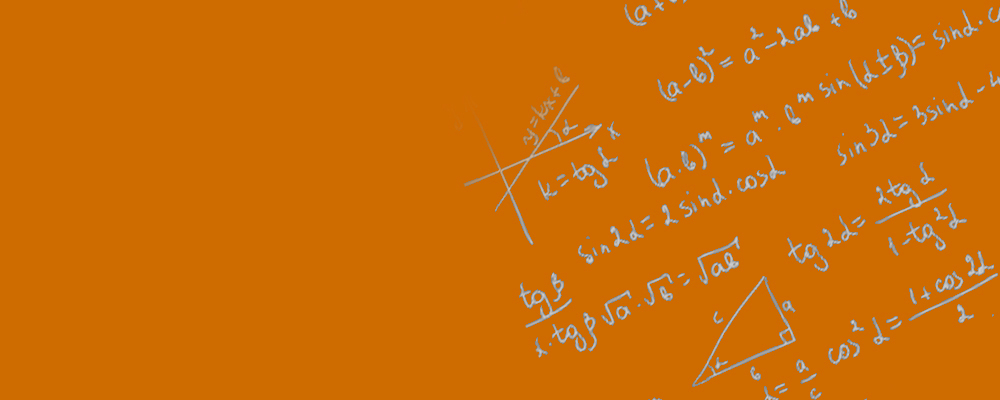 (a+
(a-b)² = a² - 2ab + b
y = kx + b
α
x
k = tg α
(a·b)ᵐ = aᵐ · bᵐ
sin(α±β) = sin α · c
sin 3α = 3 sin α - 4
sin 2α = 2 sin α · cos α
tg 2α = 2 tg α / 1 - tg² α
tg β
· tg β
√a · √b = √ab
c
a
α
b
cos² α = 1 + cos 2α / 2
α = a / c